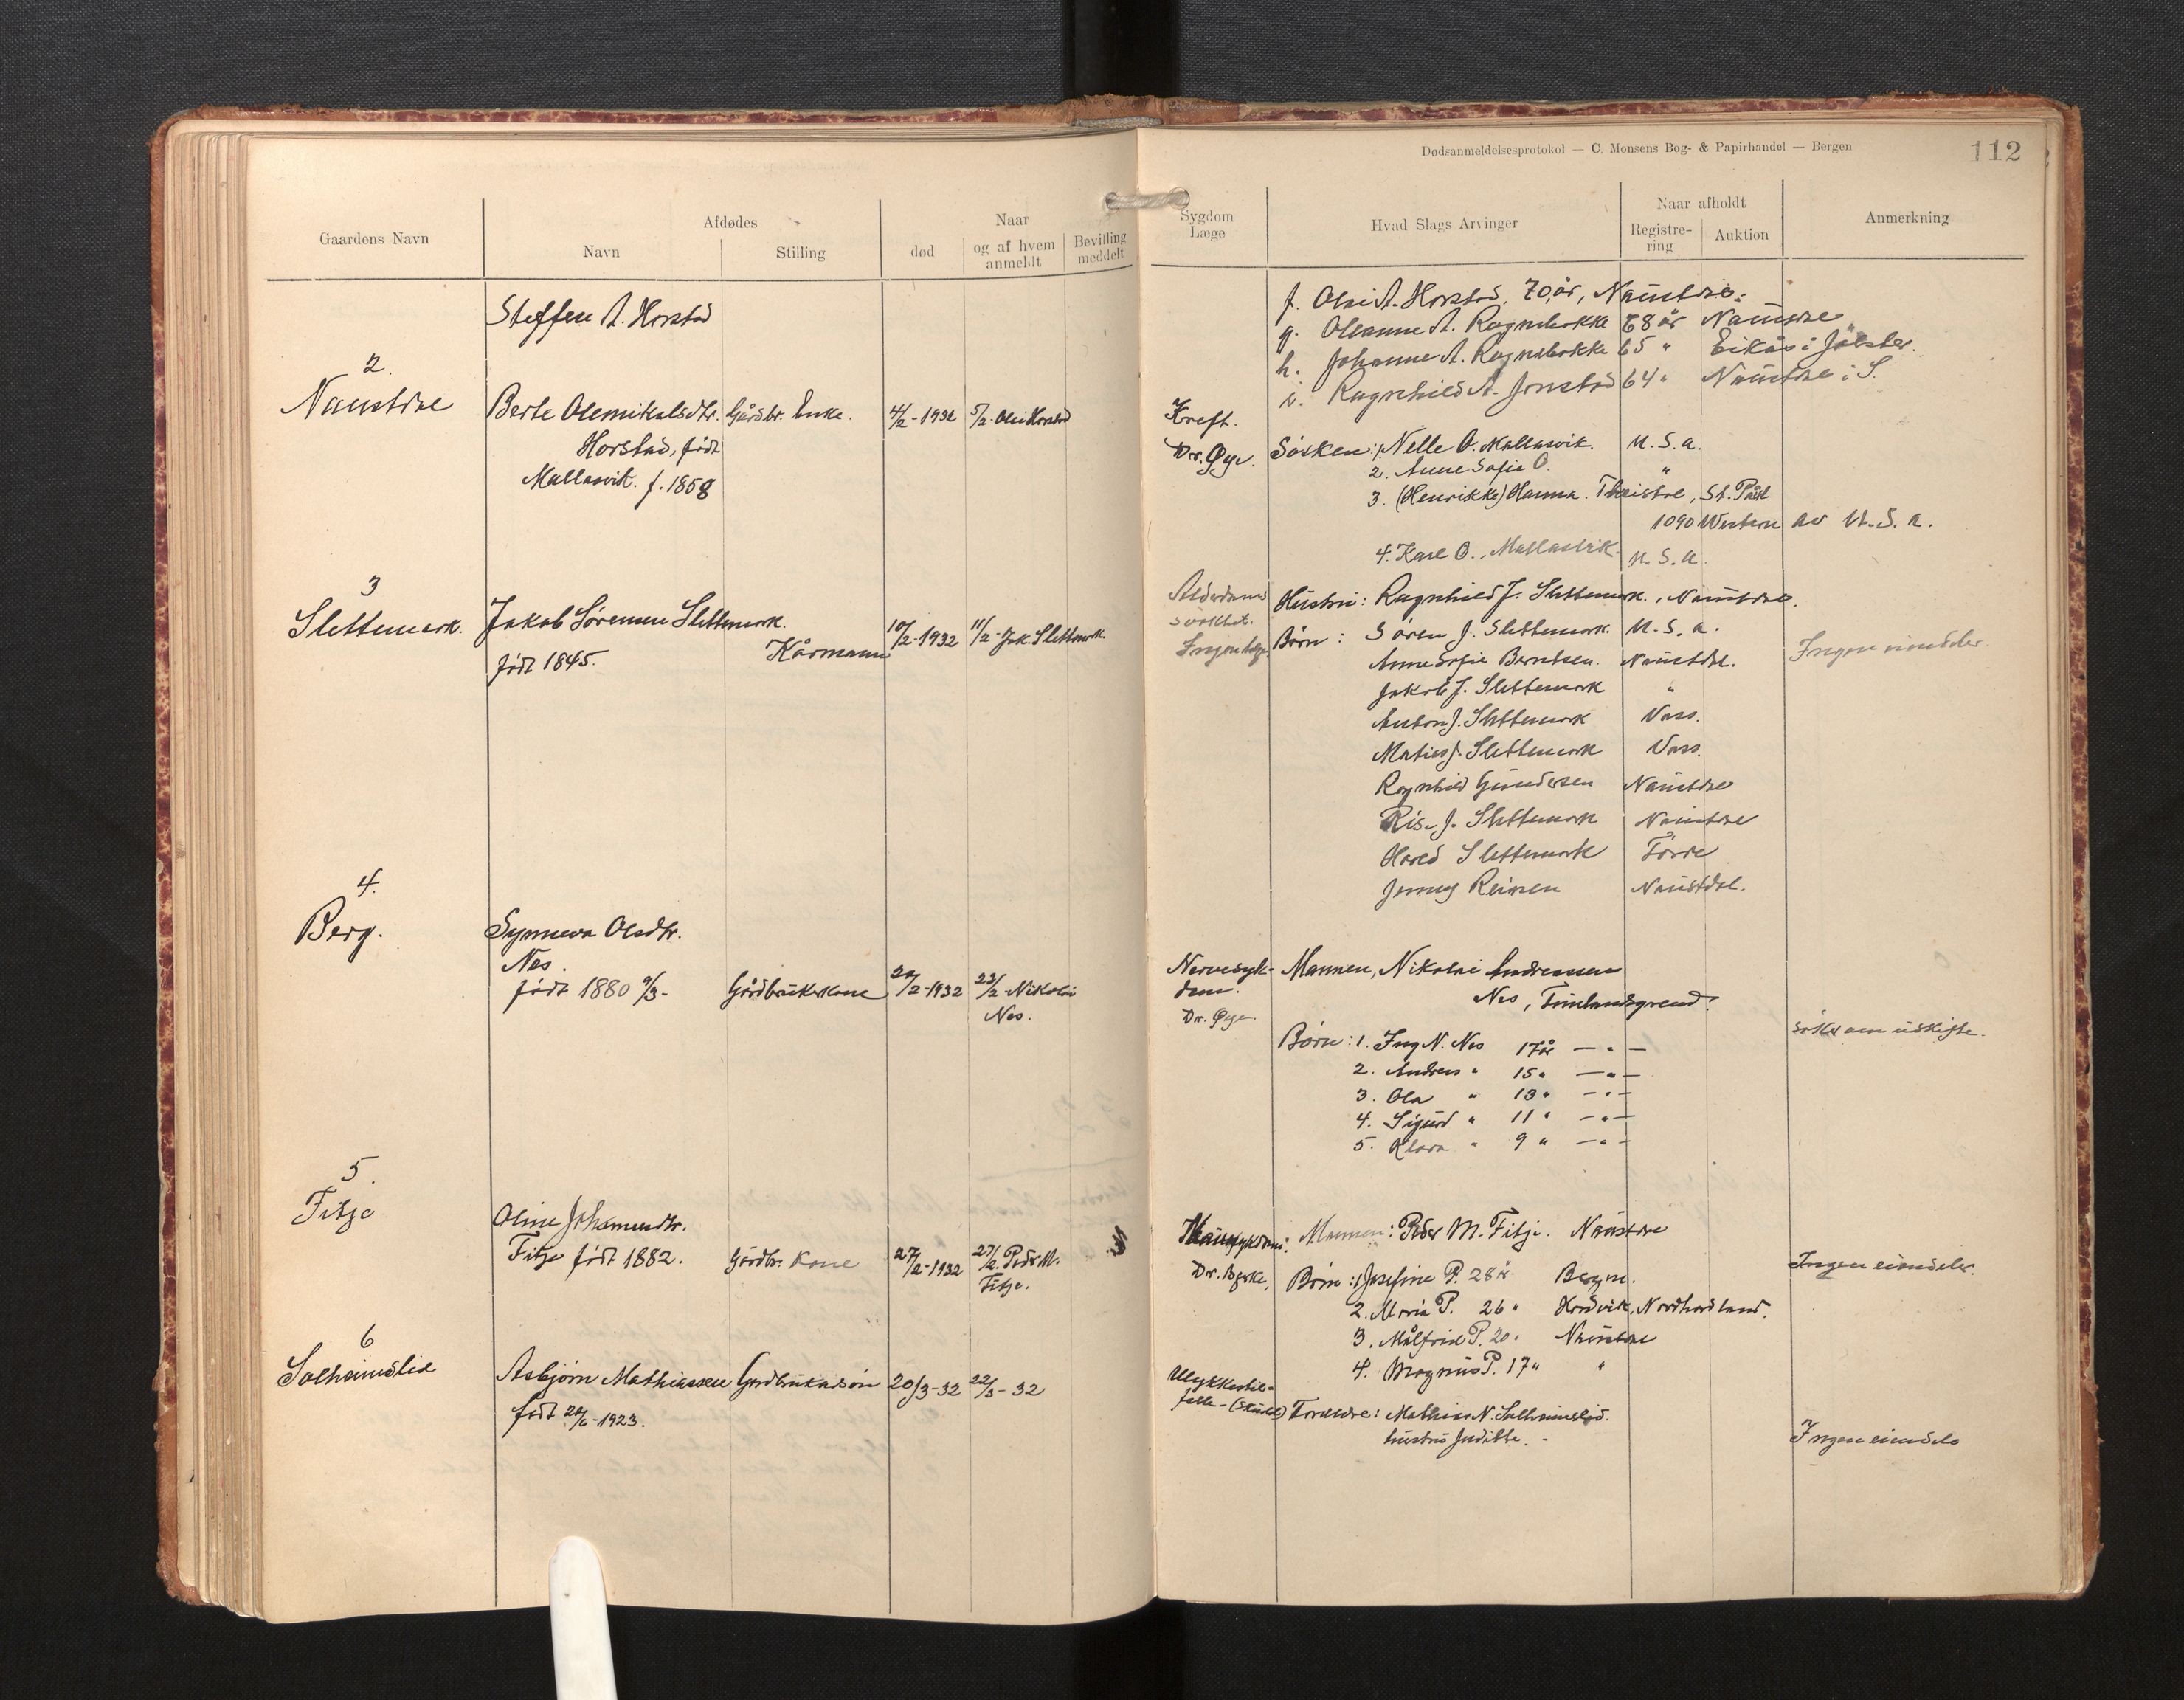 Dødsanmeldelsesprotokol — C. Monsens Bog- & Papirhandel — Bergen
112
Gaardens Navn
Afdødes
Navn
Stilling
Naar
død
og af hvem anmeldt
Bevilling meddelt
Sygdom
Læge
Hvad Slags Arvinger
Naar afholdt
Registre-
ring
Auktion
Anmerkning
Steffen A. Horstad
f. Olai A. Horstad, 70 år, Naustdal
g. Oleanne A. Rognebakke 68 år Naustdal
h. Johanne A. Rognebakke 65 " Eikås i Jølster.
i. Ragnhild A. Jonstad 64 " Naustdal i S.
2.
Naustdal
Berte Olemikalsdtr. Gårdbr. Enke. 4/2-1932 5/2-Olai Horstad
Horstad, født
Mallasvik. f. 1858
Kreft.
Dr. Øye.
Søsken: 1. Nelle O. Mallasvik. U.S.a.
2. Anne Sofie O. "
3. (Henrikke) Hanna. St. Paul
1090 Western av U.S.a.
4. Karl O. Mallasvik. U.S.a.
3
Slettemark.
Jakob Sørensen Slettemark.
født 1845.
Kårmann
10/2-1932 11/2-Jak. Slettemark.
Alderdoms
svakhet.
Ingen læge.
Hustru: Ragnhild J. Slettemark., Naustdal.
Børn: Søren J. Slettemark. U.S.a.
Anne Sofie Berntsen. Naustdal.
Jakob J. Slettemark "
Anton J. Slettemark Vass.
Matias J. Slettemark Vass.
Ragnhild Gundersen Naustdal
J. Slettemark Naustdal
Harald Slettemark Førde
Jenny Reinen Naustdal.
Ingen eiendeler.
4.
Berg.
Synneva Olsdtr.
Nes.
født 1880 9/3- Gårdbrukerkone 20/2-1932 23/2-Nikolai
Nes.
Nervesyk-
dom.
Dr. Øye.
Mannen, Nikolai Andreassen
Nes,
Børn: 1. Ing N. Nes 17 år — " —
2. Andreas " 15 " — " —
3. Ola " 13 " — " —
4. Sigurd " 11 " — " —
5. Klara " 9 " — " —
søker om uskifte.
5.
Fitje
Oline Johannesdtr.
Fitje født 1882. Gårdbr. kone 27/2-1932 27/2. Peder M.
Fitje.
Dr. Bjerke.
Mannen: Peder M. Fitje. Naustdal
Børn: 1 Josefine P. 28 år Bergen.
2. Maria P. 26 " Hordvik, Nordhordland.
3. Målfrid P. 20 " Naustdal
4. Magnus P. 17 " "
Ingen eiendeler.
6
Solheimslid
Asbjørn Mathiassen Gardbrukarson 20/3-32 22/3-32
født 20/6-1923.
Ulykkestil-
felle-
Foreldre: Mathias N. Solheimslid.
hustru Juditte. -
Ingen eiendele